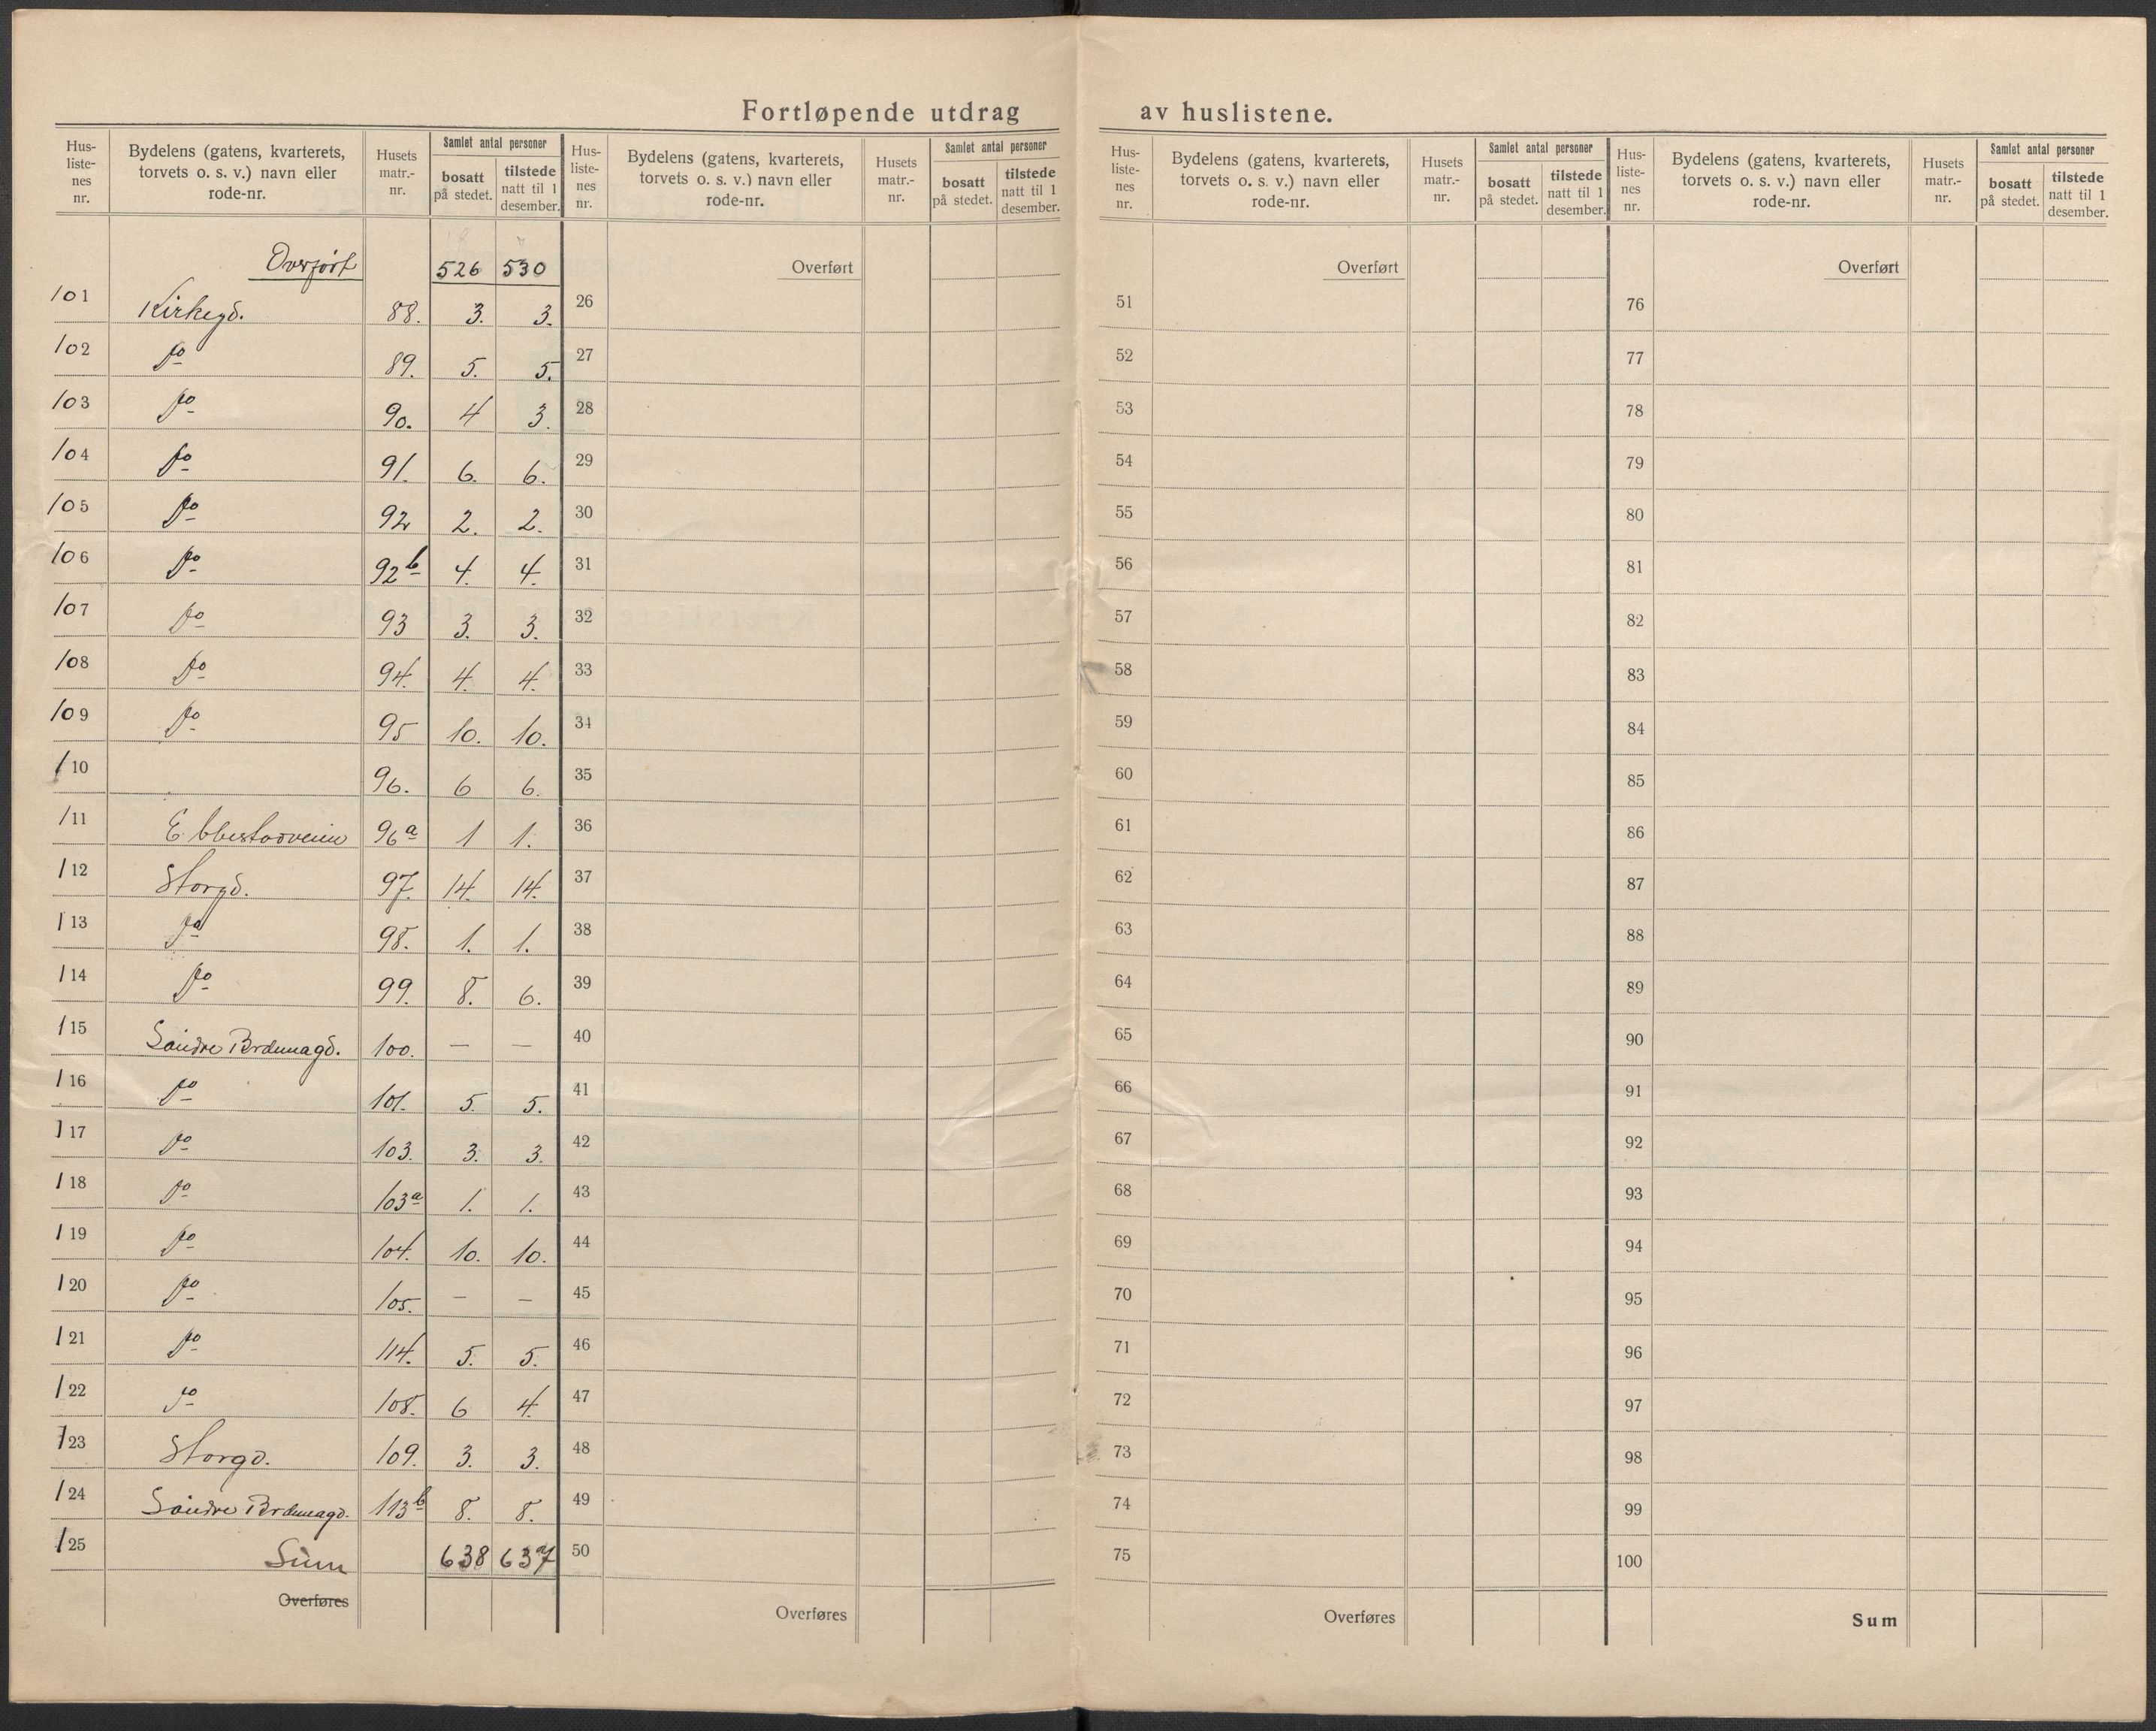 Fortløpende utdrag av huslistene.
Hus-
liste-
nes
nr.
Bydelens (gatens, kvarterets,
torvets o. s. v.) navn eller
rode-nr.
Husets
matr.-
nr.
Samlet antal personer
bosatt
på stedet.
tilstede
natt til 1
desember.
Overført 526 530
101 Kirkegd. 88. 3. 3.
102 do 89. 5. 5.
103 do 90. 4 3.
104 do 91. 6. 6.
105 do 92 2. 2.
106 do 92b 4. 4.
107 do 93 3. 3.
108 do 94. 4. 4.
109 do 95 10. 10.
110 96. 6 6.
111 96a 1 1.
112 Storgd. 97. 14. 14.
113 do 98. 1. 1.
114 do 99. 8. 6.
115 Søndre 100. — —
116 do 101. 5. 5.
117 do 103. 3. 3.
118 do 103a 1. 1.
119 do 104. 10. 10.
120 do 105. — —
121 do 114. 5. 5.
122 do 108. 6 4.
123 Storgd. 109. 3. 3.
124 Søndre 113b 8. 8.
125 Sum 638 637
Overføres
Hus-
liste-
nes
nr.
Bydelens (gatens, kvarterets,
torvets o. s. v.) navn eller
rode-nr.
Husets
matr.-
nr.
Samlet antal personer
bosatt
på stedet.
tilstede
natt til 1
desember.
Overført
26
27
28
29
30
31
32
33
34
35
36
37
38
39
40
41
42
43
44
45
46
47
48
49
50
Overføres
Hus-
liste-
nes
nr.
Bydelens (gatens, kvarterets,
torvets o. s. v.) navn eller
rode-nr.
Husets
matr.-
nr.
Samlet antal personer
bosatt
på stedet.
tilstede
natt til 1
desember.
Overført
51
52
53
54
55
56
57
58
59
60
61
62
63
64
65
66
67
68
69
70
71
72
73
74
75
Overføres
Hus-
liste-
nes
nr.
Bydelens (gatens, kvarterets,
torvets o. s. v.) navn eller
rode-nr.
Husets
matr.-
nr.
Samlet antal personer
bosatt
på stedet.
tilstede
natt til 1
desember.
Overført
76
77
78
79
80
81
82
83
84
85
86
87
88
89
90
91
92
93
94
95
96
97
98
99
100
Sum